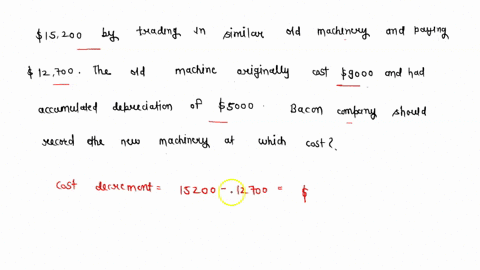 $15,200 by trading in similar old machinery and paying
$12,700. The old machine originally cost $9000 and had
accumulated depreciation of $5000. Bacon company should
record the new machinery at which cost?
Cost decrement = 15200 - . 12700 = $